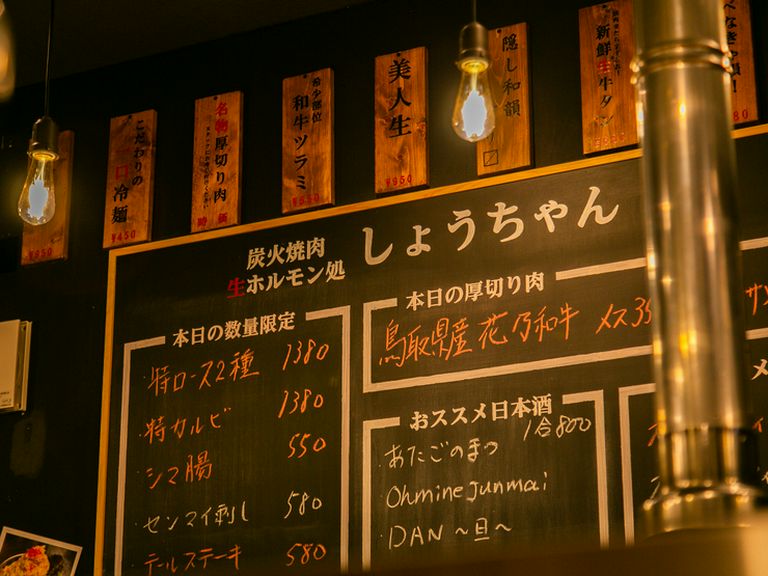 こだわりの
一口冷麺
¥450
名物厚切り肉
時価
希少部位
和牛ツラミ
¥950
美人生
¥950
隠し和韻
新鮮生牛タン
炭火焼肉
生ホルモン処
しょうちゃん
本日の数量限定
特ロース2種 1380
特カルビ 1380
シマ腸 550
センマイ刺し 580
テールステーキ 580
本日の厚切り肉
鳥取県産 花乃和牛 メス
おススメ日本酒
1合800
あたごのまつ
Ohmine junmai
DAN ～旦～